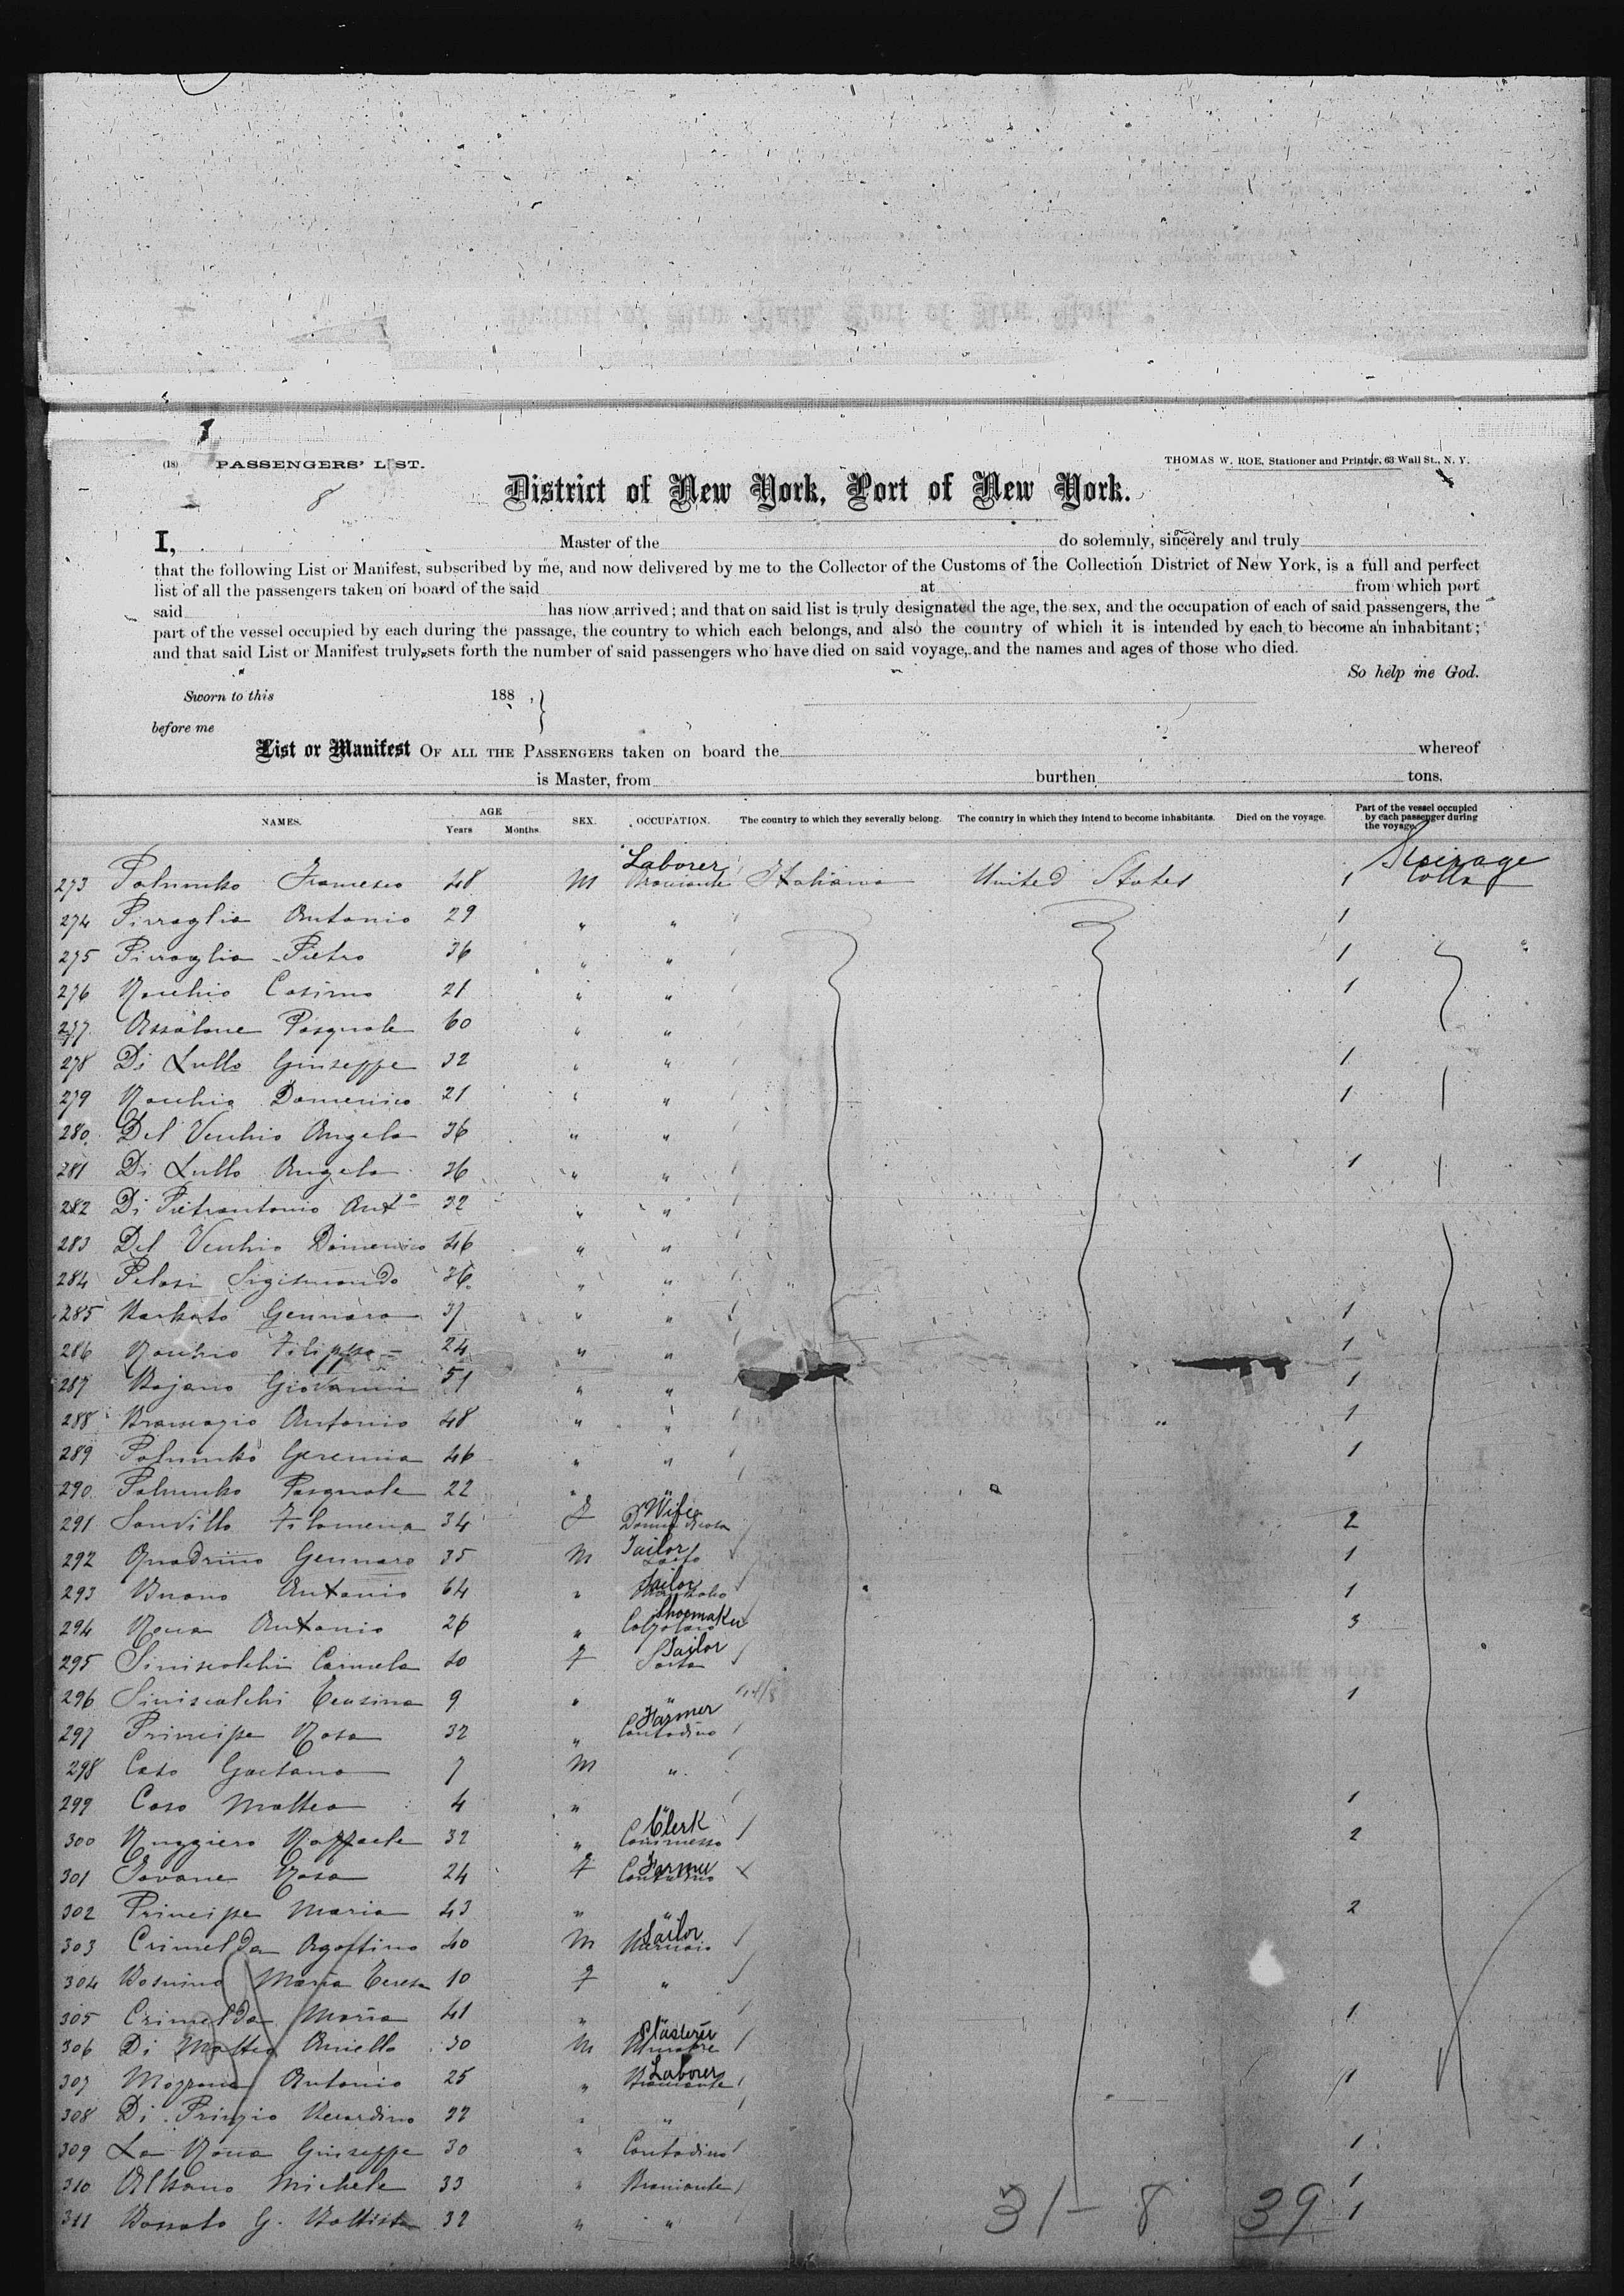 (18) PASSENGERS' LIST.
THOMAS W. ROE, Stationer and Printer, 63 Wall St., N. Y.
8
District of New York, Port of New York.
I, Master of the do solemnly, sincerely and truly
that the following List or Manifest, subscribed by me, and now delivered by me to the Collector of the Customs of the Collection District of New York, is a full and perfect
list of all the passengers taken on board of the said at from which port
said has now arrived; and that on said list is truly designated the age, the sex, and the occupation of each of said passengers, the
part of the vessel occupied by each during the passage, the country to which each belongs, and also the country of which it is intended by each to become an inhabitant;
and that said List or Manifest truly sets forth the number of said passengers who have died on said voyage, and the names and ages of those who died.
So help me God.
Sworn to this 188 ,
before me
List or Manifest OF ALL THE PASSENGERS taken on board the whereof
is Master, from burthen tons.
NAMES. AGE Years Months. SEX. OCCUPATION. The country to which they severally belong. The country in which they intend to become inhabitants. Died on the voyage. Part of the vessel occupied by each passenger during the voyage.
Laborer Steirage
273 Palumbo Francesco 48 M Bracciante Italiana United States 1
274 Pirraglia Antonio 29 " " 1
275 Pirraglia Pietro 36 " " 1
276 Nocchio Cosimo 21 " " 1
277 Assalone Pasquale 60 " "
278 Di Lullo Giuseppe 32 " " 1
279 Nocchio Domenico 21 " " 1
280 Del Vecchio Angelo 36 " "
281 Di Lullo Angelo 36 " " 1
282 Di Pietrantonio Anto 32 " "
283 Del Vecchio Domenico 46 " "
284 Pelosi Sigismondo 36 " "
285 Barbato Gennaro 37 " " 1
286 Nocchio Filippo 24 " " 1
287 Bojano Giovanni 51 " " 1
288 Antonio 48 " " 1
289 Palumbo Geremia 46 " " 1
290 Palumbo Pasquale 22 " "
Wife
291 Filomena 34 F 2
Tailor
292 Quadrino Gennaro 35 M Sarto 1
Tailor
293 Buono Antonio 64 " 1
Shoemaker
294 Antonio 26 " Calzolaio 3
Tailor
295 Siniscalchi Carmela 40 F Sarta
296 Siniscalchi Teresina 9 " " 1
Farmer
297 Principe Rosa 32 " Contadino
298 Caso Gaetano 7 M "
299 Caso Matteo 4 " " 1
Clerk
300 Ruggiero Raffaele 32 " Commesso 2
Farmer
301 Iovane Rosa 24 F Contadino
302 Principe Maria 43 " " 2
Tailor
303 Crimelda Agostino 40 M
304 Maria Teresa 10 F "
305 Crimelda Maria 41 " " 1
Plasterer
306 Di Matteo Aniello 30 M
Laborer
307 Antonio 25 " Bracciante 1
308 Di Prinzio Berardino 32 " "
309 La Rocca Giuseppe 30 " Contadino 1
310 Albano Michele 33 " Bracciante 1
311 Bonato G. Battista 32 " " 1
31 - 8 39